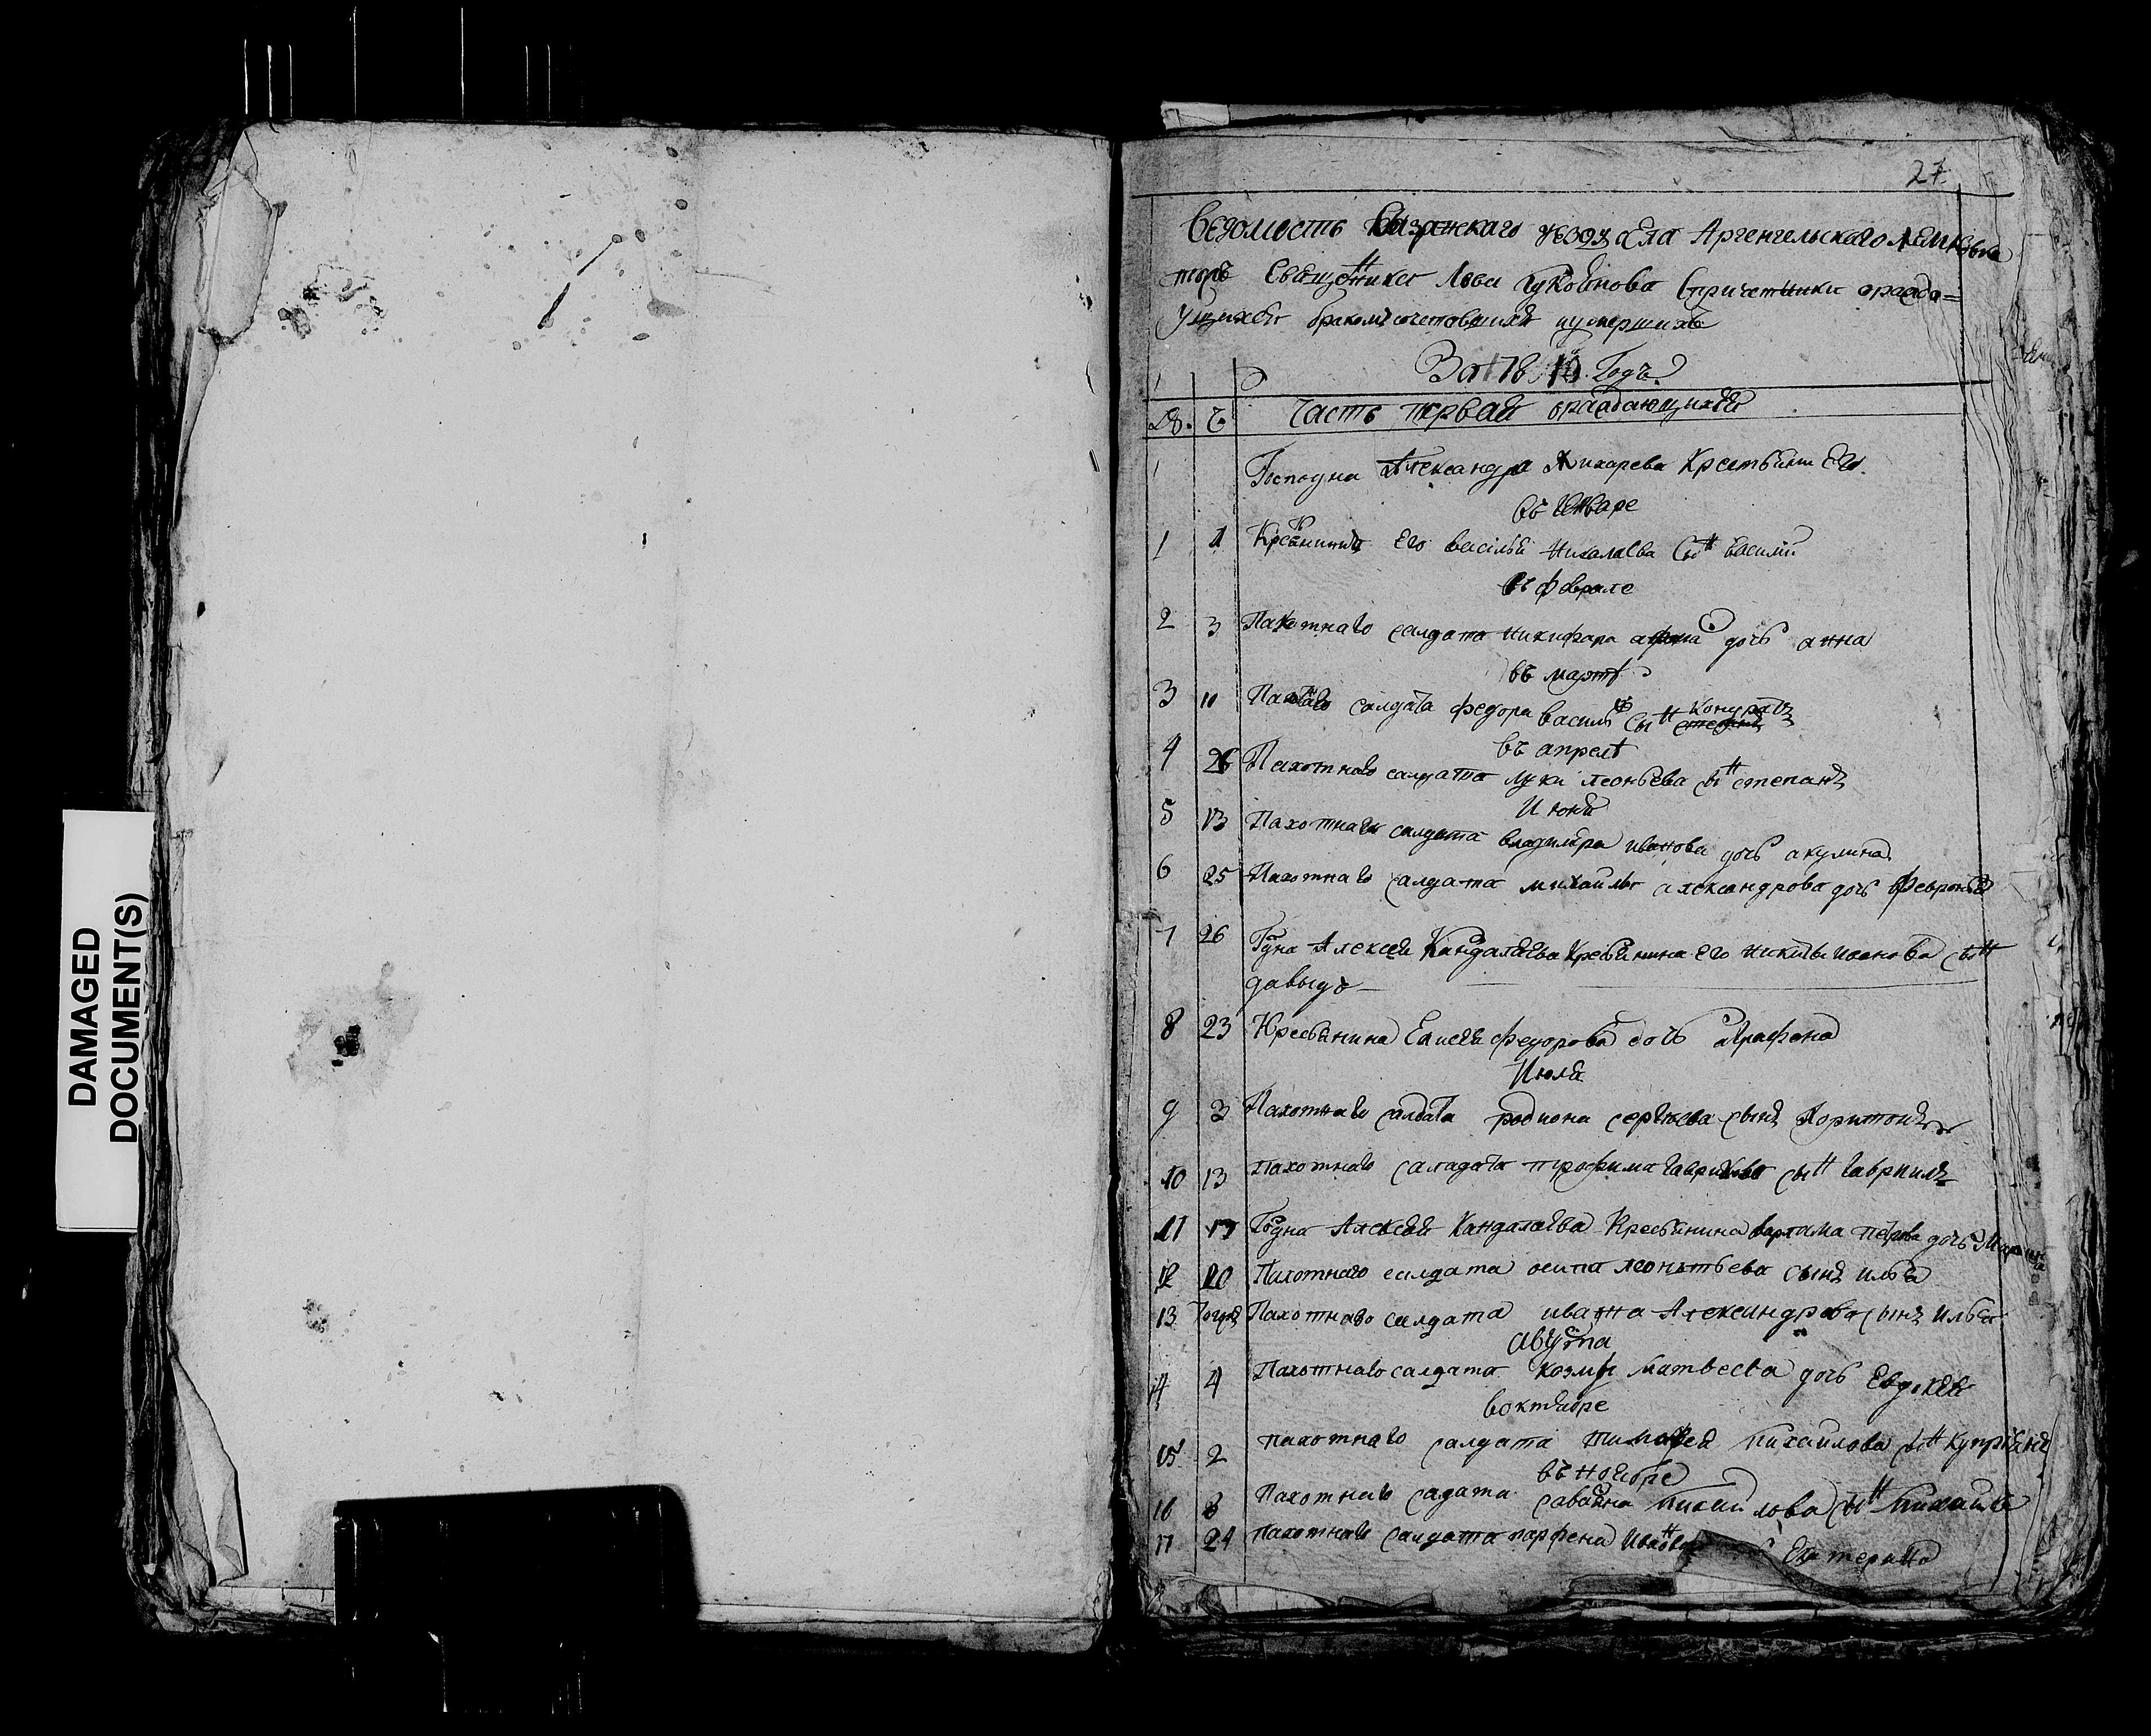 DAMAGED
DOCUMENT(S)
27
Ведомость Сызранскаго уезду села Архенгельскаго
тожъ Священника Льва Лукоянова Спричетники ораждо=
ующихся бракомъ сочетовшихся иумершихъ
За 1781 10 Годъ
Часть первая ораждающихся
Господна Александра Жихарева Крестьянъ Его
въ Генваре
1 1 Кресьянина Его василья Николаева Сын василий
въ феврале
2 3 Пахотнаго салдата никифара дочь анна
въ марте
3 10 Пахотнаго салдата федора василь сын кондратъ
въ апреле
4 26 Пахотнаго салдата луки леонтьева сын степанъ
Июня
5 13 Пахотнаго салдата владимира иванова дочь акулина
6 25 Пахотнаго салдата михаилы александрова дочь Февронья
7 26 Гдна Алексея Кандалаева Кресьянина Его никиты иванова сын
давыдъ
8 23 Кресьянина Елисея федорова дочь аграфена
Июля
9 3 Пахотнаго салдата родиона сергеева сынъ Харитонъ
10 13 Пахотнаго салдата трофима гаврилова сын гаврилъ
11 17 Гдна Алексея Кандалаева Кресьянина варлама петрова дочь Марина
12 20 Пахотнаго салдата осипа леонтьева сынъ илья
13 Тогожъ Пахотнаго салдата ивана Александрова сынъ илья
Августа
14 4 Пахотнаго салдата козмы матвеева дочь Евдокея
воктябре
15 2 пахотнаго салдата тимофея михаилова сын Куприянъ
въ ноябре
16 8 Пахотнаго садата михаилова сын михаила
17 24 пахотнаго салдата парфена Иванова Екатерина